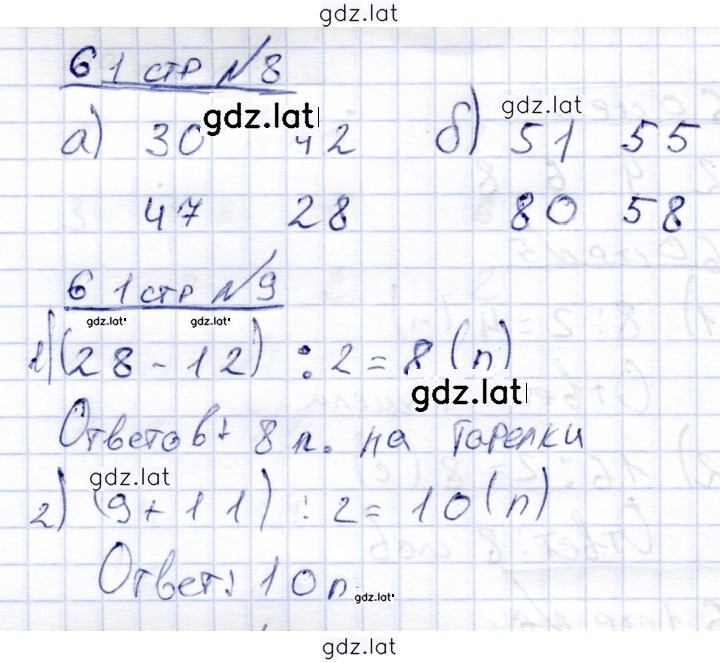 gdz.lat
61 стр №8
gdz.lat
gdz.lat
а) 30 42 б) 51 55
47 28 80 58
61 стр №9
gdz.lat gdz.lat
1) (28 - 12) : 2 = 8 (п)
gdz.lat
8 п. на тарелки
gdz.lat
2) (9 + 11) : 2 = 10 (п)
Ответ: 10 п
gdz.lat
gdz.lat